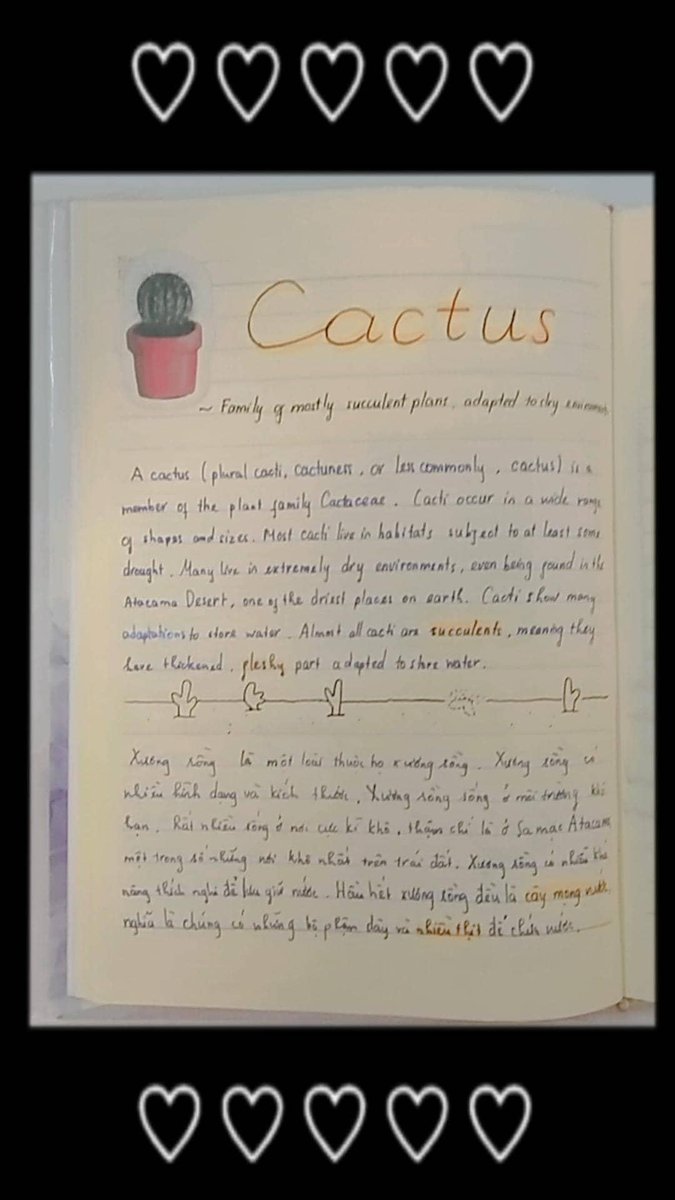 Cactus
~ Family of mostly succulent plans, adapted to dry
A cactus (plural cacti, cactuness, or less commonly, cactus) is a
member of the plant family Cactaceae. Cacti occur in a wide range
of shapes and sizes. Most cacti live in habitats subject to at least some
drought. Many live in extremely dry environments, even being found in the
Atacama Desert, one of the driest places on earth. Cacti show many
adaptations to store water. Almost all cacti are succulents, meaning they
have thickened, fleshy part adapted to store water.
Xương rồng là một loài thuộc họ xương rồng. Xương rồng có
nhiều hình dạng và kích thước. Xương rồng sống ở môi trường khô
hạn. Rất nhiều sống ở nơi cực kì khô, thậm chí là ở Sa mạc Atacama
một trong số những nơi khô nhất trên trái đất. Xương rồng có nhiều khả
năng thích nghi để lưu giữ nước. Hầu hết xương rồng đều là cây mọng nước,
nghĩa là chúng có những bộ phận dày và nhiều thịt để chứa nước.